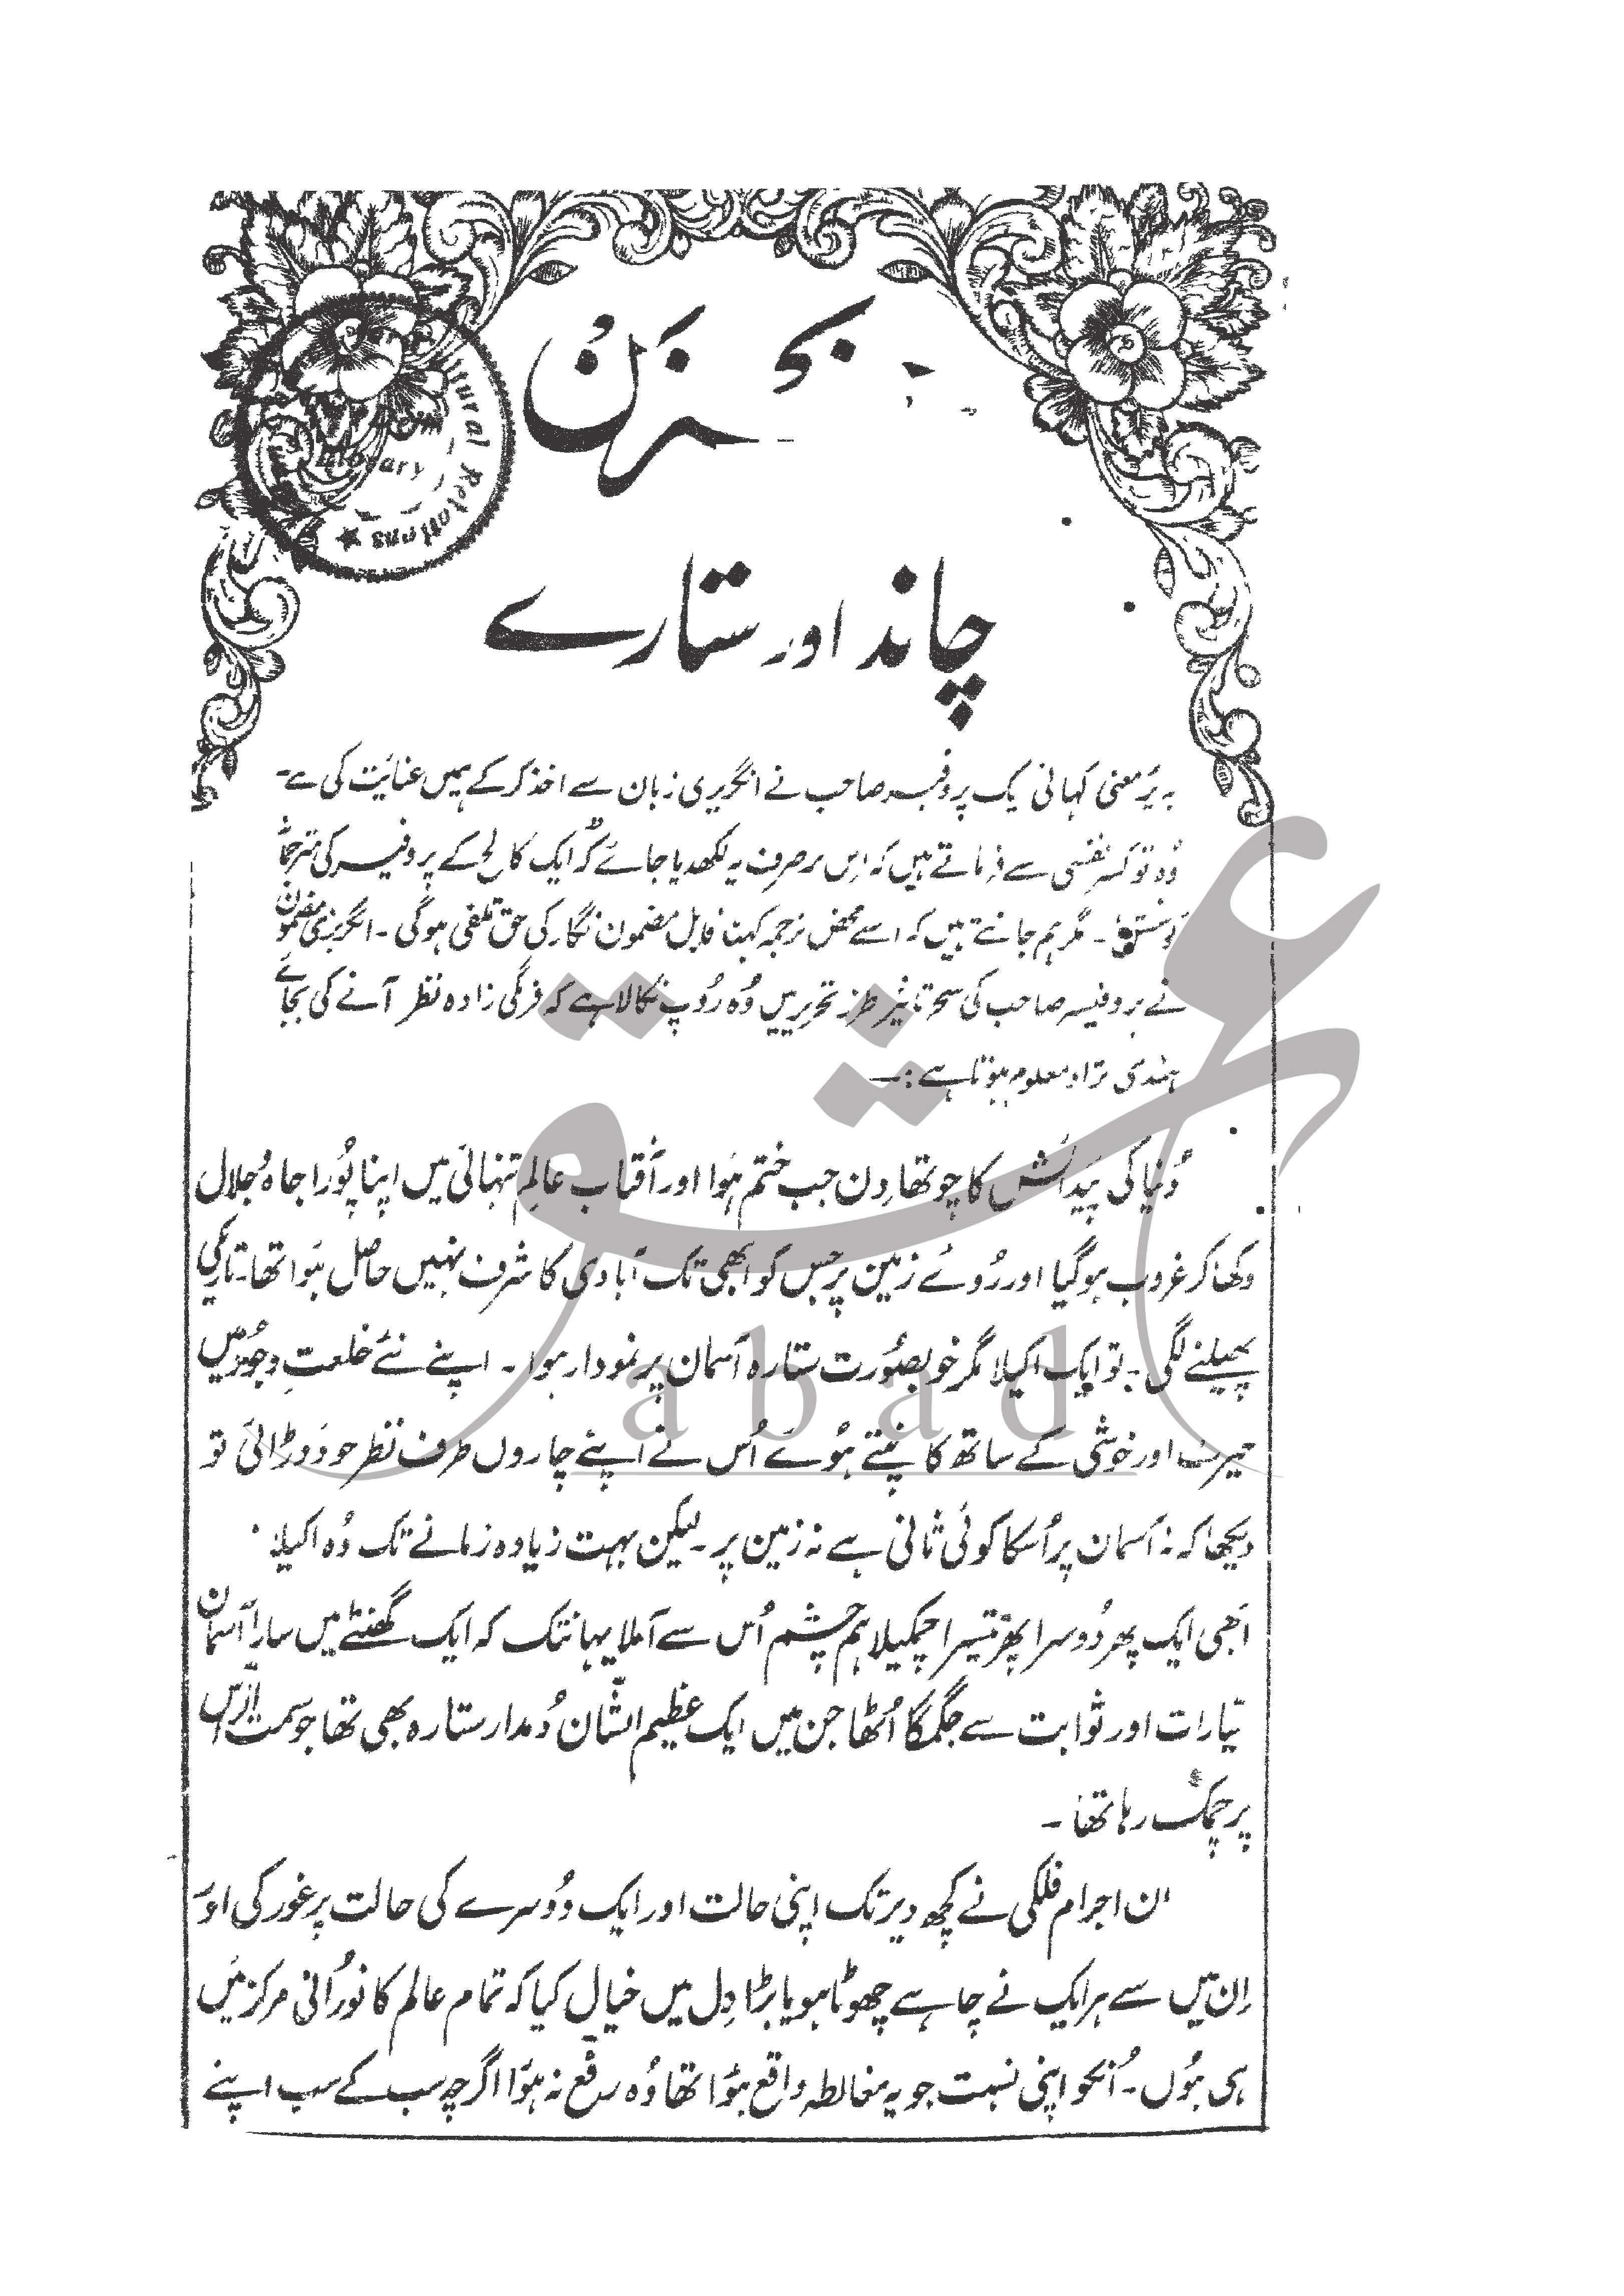 مخزن
چاند اور ستارے
یہ پُرمعنی کہانی ایک پروفیسر صاحب نے انگریزی زبان سے اخذ کر کے ہمیں عنایت کی ہے-
وُہ تو کسرِ نفسی سے فرماتے ہیں کہ اِس پر صرف یہ لکھدیا جائے کہ ایک کالج کے پروفیسر کی مترجمانہ
مگر ہم جانتے ہیں کہ اسے محض ترجمہ کہنا قابل مضمون نگار کی حق تلفی ہوگی - انگریزی مضمون
نے پروفیسر صاحب کی سحر تاثیر طرز تحریر میں وُہ رُوپ نکالا ہے کہ فرنگی زادہ نظر آنے کی بجائے
ہندی نژاد معلوم ہوتا ہے :—
دُنیا کی پَیدائش کا چوتھا دِن جب ختم ہُوا اور آفتاب عالمِ تنہائی میں اپنا پُورا جاہ و جلال
دکھا کر غروب ہو گیا اور رُوئے زمین پر جس کو ابھی تک آبادی کا شرف نہیں حاصل ہُوا تھا-تاریکی
پھیلنے لگی - تو ایک اکیلا مگر خوبصُورت ستارہ آسمان پر نمودار ہوا - اپنے نئے خلعتِ وجُود میں
حیرت اور خوشی کے ساتھ کانپتے ہُوئے اُس نے اپنے چاروں طرف نظر جو دَوڑائی تو
دیکھا کہ نہ آسمان پر اُسکا کوئی ثانی ہے نہ زمین پر - لیکن بہت زیادہ زمانے تک وُہ اکیلا نہ
ابھی ایک پھر دُوسرا پھر تیسرا چمکیلا ہم چشم اُس سے آملا یہانتک کہ ایک گھنٹے میں سارا آسمان
سیّارات اور ثوابت سے جگمگا اُٹھا جن میں ایک عظیم الشّان دُمدار ستارہ بھی تھا جو سمت الرّاس
پر چمک رہا تھا -
اِن اجرام فلکی نے کچھ دیر تک اپنی حالت اور ایک دُوسرے کی حالت پر غور کی اور
اِن میں سے ہر ایک نے چاہے چھوٹا ہو یا بڑا دِل میں خیال کیا کہ تمام عالم کا نُورانی مرکز مَیں
ہی ہُوں - اُنکو اپنی نسبت جو یہ مغالطہ واقع ہُوا تھا وُہ رفع نہ ہُوا اگرچہ سب کے سب اپنے
Cultural Relations
Library
عشق
abad